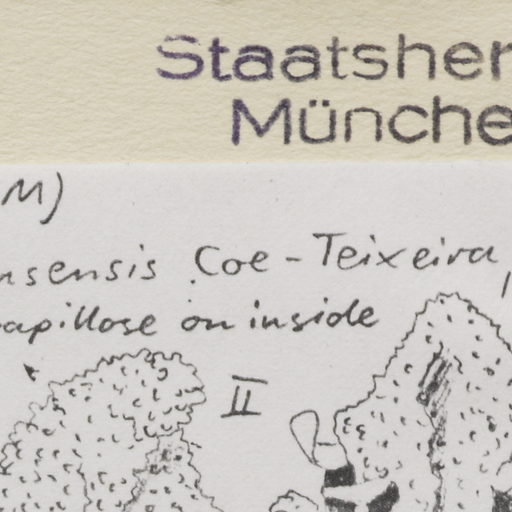 Staatsher
Münche
M)
nsensis Coe-Teixeira,
papillose on inside
II